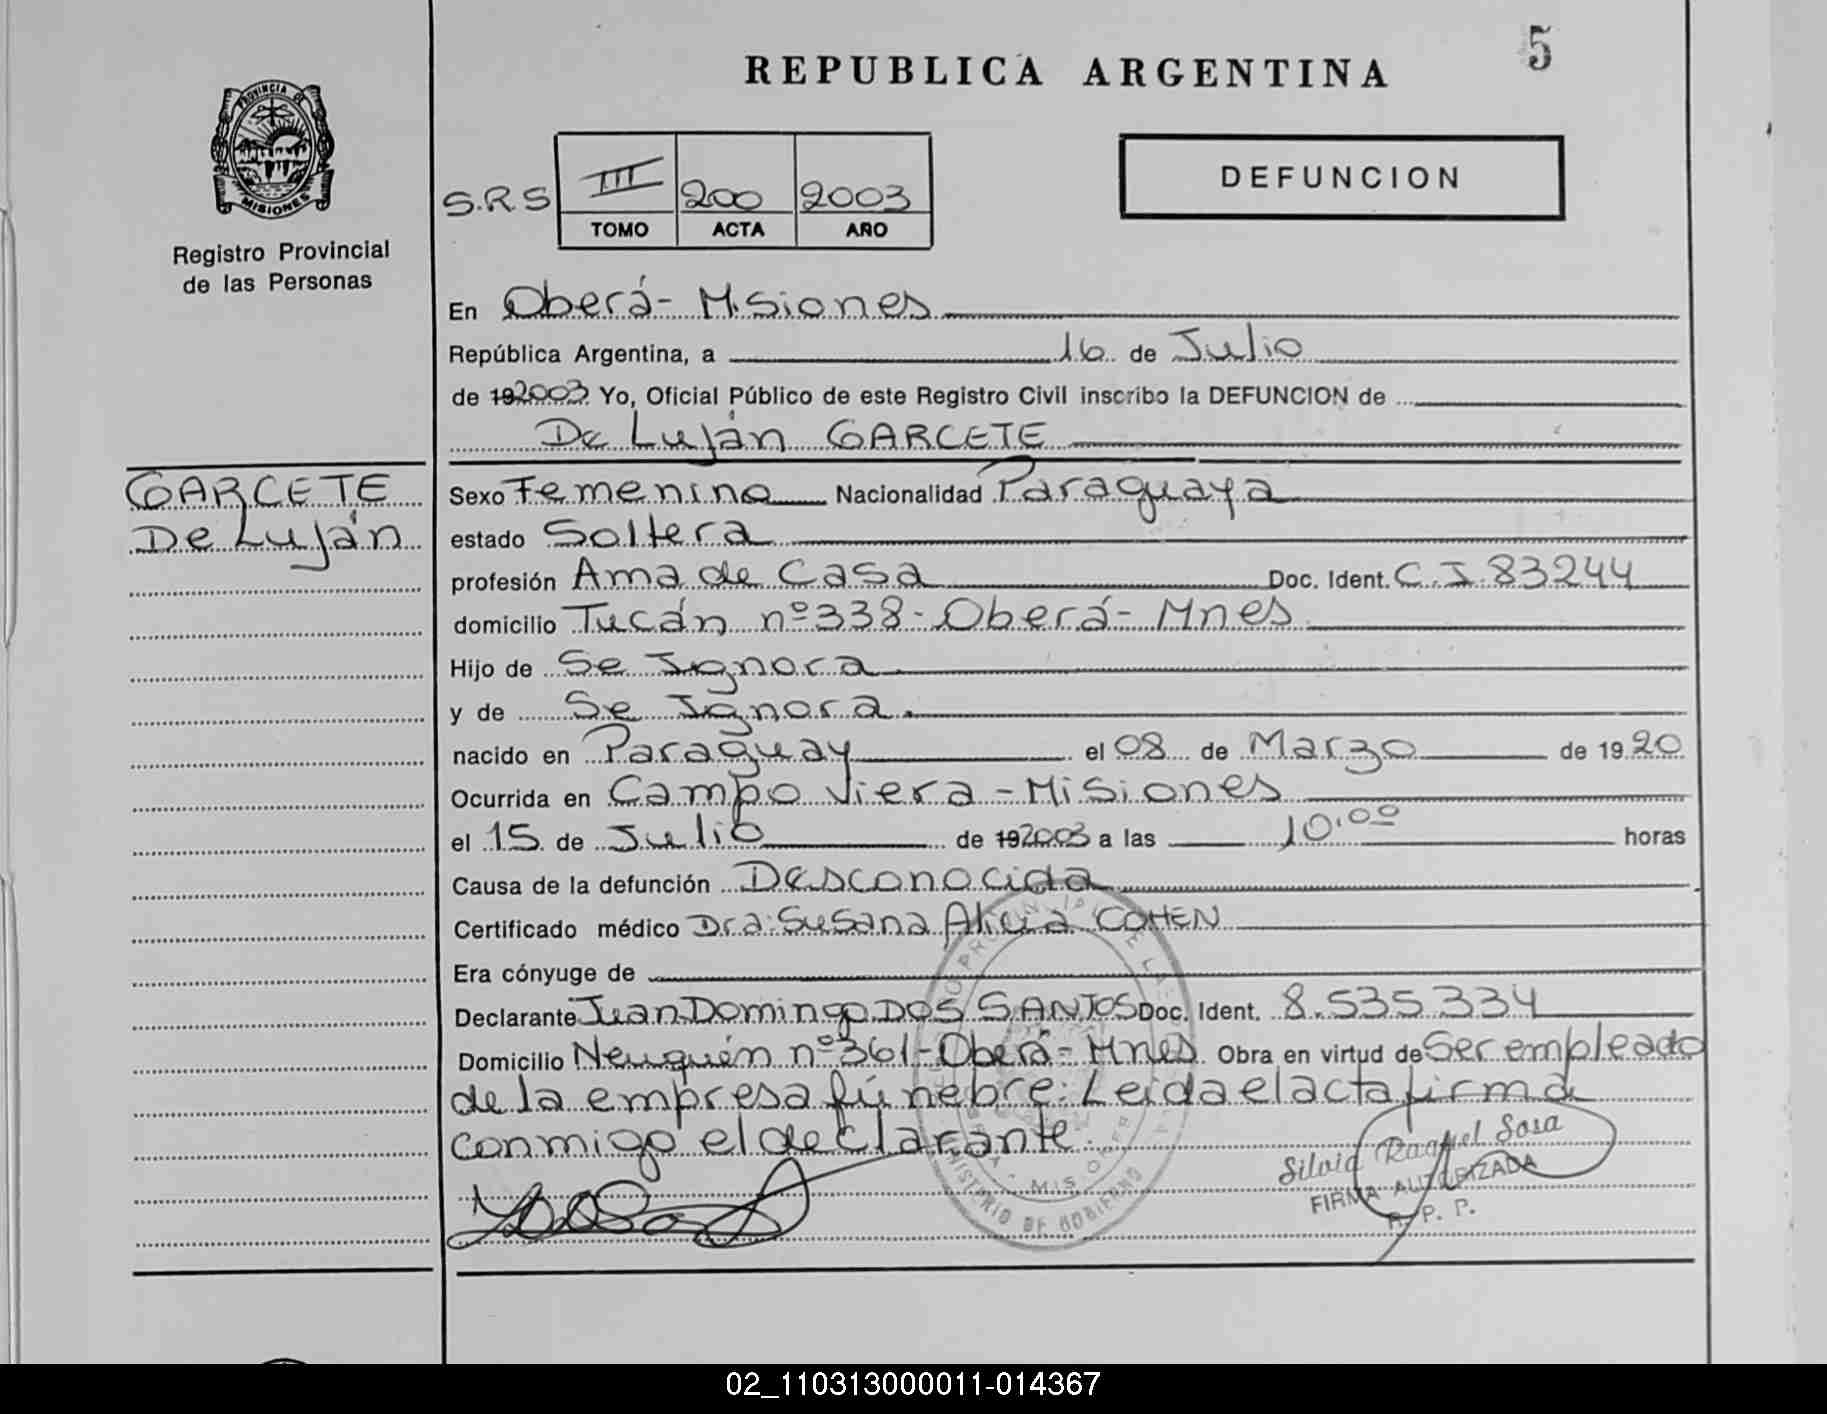 5
REPUBLICA ARGENTINA
PROVINCIA DE
MISIONES
Registro Provincial
de las Personas
DEFUNCION
S.R.S III 200 2003
TOMO ACTA AÑO
En Oberá - Misiones
República Argentina, a 16 de Julio
de 19 2003 Yo, Oficial Público de este Registro Civil inscribo la DEFUNCION de
De Luján GARCETE
GARCETE
De Luján
Sexo Femenino Nacionalidad Paraguaya
estado Soltera
profesión Ama de Casa Doc. Ident. C.I. 83244
domicilio Tucán nº 338 - Oberá - Mnes
Hijo de Se Ignora
y de Se Ignora.
nacido en Paraguay el 08 de Marzo de 1920
Ocurrida en Campo Viera - Misiones
el 15 de Julio de 19 2003 a las 10.00 horas
Causa de la defunción Desconocida
Certificado médico Dra. Susana Alicia COHEN
Era cónyuge de
Declarante Juan Domingo DOS SANTOS Doc. Ident. 8.535.334
Domicilio Neuquén nº 361 - Oberá - Mnes. Obra en virtud de Ser empleado
de la empresa fúnebre. Leida el acta firma
conmigo el declarante.
Silvia Raquel Sosa
FIRMA AUTORIZADA
R. P. P.
MINISTERIO DE GOBIERNO
02_110313000011-014367